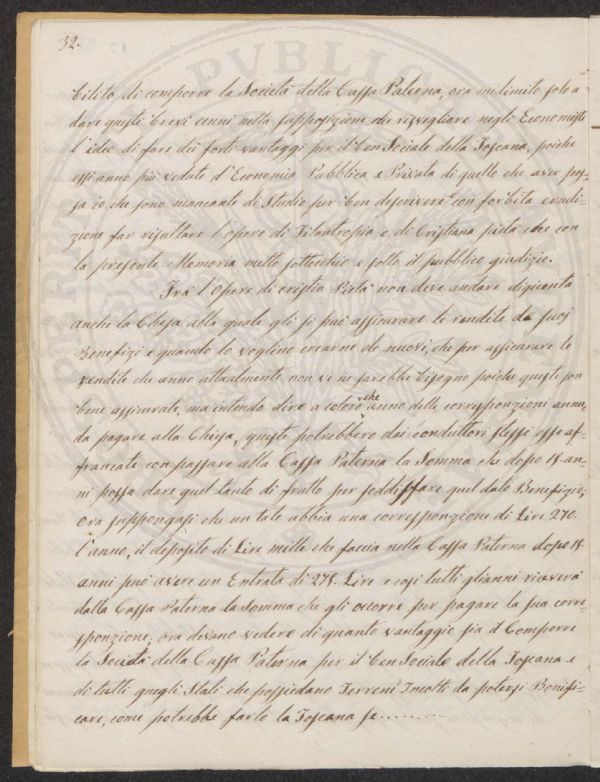 32.
bilito di comporre la Società della Cassa Paterna, ora mi limito solo a
dare questi brevi cenni nella supposizione di risvegliare negli Economisti
l'idee di fare dei forti vantaggi per il ben Sociale della Toscana, poiche
essi anno più vedute d'Economia Pubblica e Privata di quello che aver pos-
sa io che sono mancante di Studio per ben descrivere con forbita erudi-
zione far risaltare l'opere di Filantropia e di Cristiana pietà che con
la presente Memoria metto sottocchio e sotto il pubblico giudizio.
Fra l'Opere di Pietà non deve andare digiunta
anche la Chiesa alla quale gli si può assicurare le rendite de suoj
Benefizi e quando lo voglino crearne de nuovi, che per assicurare le
vendite che anno attualmente non ve ne sarebbe bisogno poiche queste son
bene assicurate, ma intendo dire a coloro che anno delle corresponzioni annue
da pagare alla Chiesa, queste potrebbero dai conduttori stessi esse af-
francate con passare alla Cassa Paterna la Somma che dopo 18. an-
ni possa dare quel tanto di frutto per soddisfare quel dato Benefizio;
ora suppongasi che un tale abbia una corresponzione di Lire 270.
l'anno, il deposito di Lire mille che faccia nella Cassa Paterna dopo 18.
anni può avere un Entrata di 278. Lire e così tutti gl'anni riceverà
dalla Cassa Paterna la Somma che gli occorre per pagare la sua corre-
sponzione; ora devano vedere di quanto vantaggio sia il Comporre
la Società della Cassa Paterna per il ben Sociale della Toscana e
di tutti quegli Stati che possiedano Terreni Incolti da potersi Bonifi-
care, come potrebbe farlo la Toscana se.........
PVBLIC